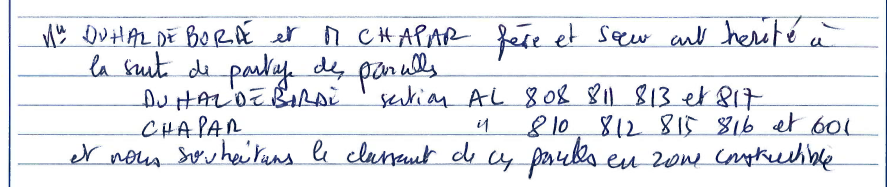 Mme DUHALDEBORDÉ et M CHAPAR frère et sœur ont hérité à
la suite de partage des parcelles
DUHALDEBORDÉ section AL 808 811 813 et 817
CHAPAR " 810 812 815 816 et 601
et nous souhaitons le classement de ces parcelles en zone constructible